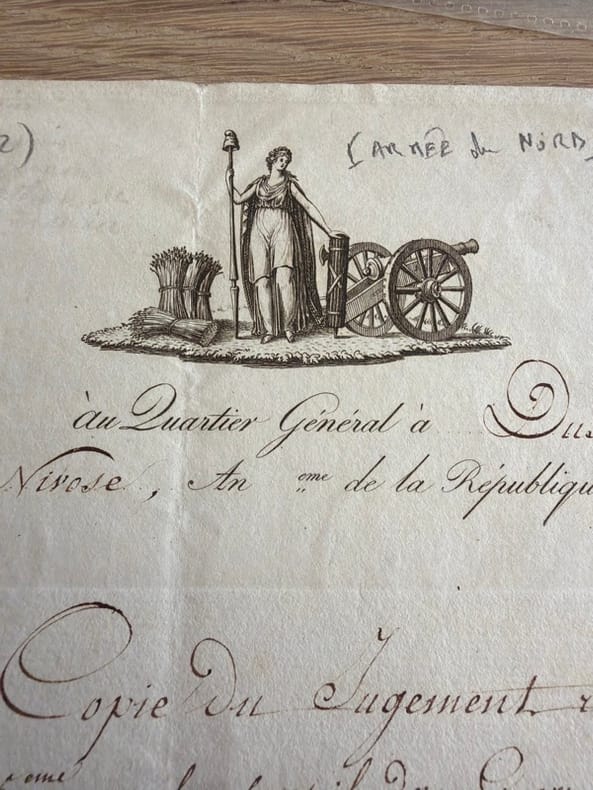 2) [ARMÉE du NORD
au Quartier Général à Dus
Nivose, An eme de la République
Copie du Jugement
eme